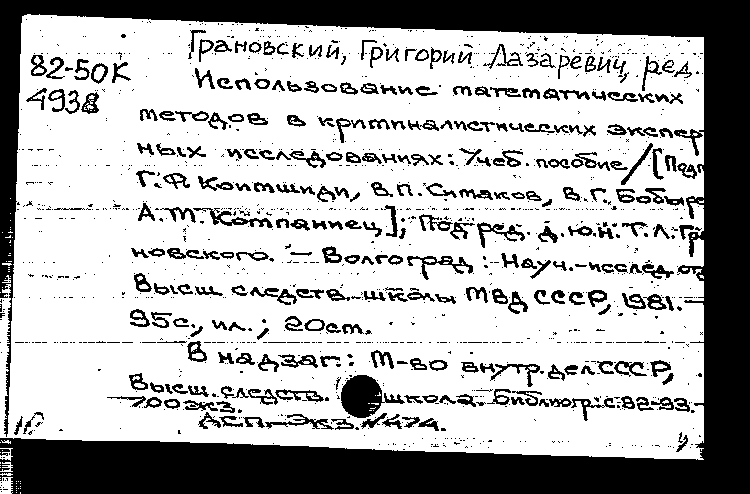 Грановский, Григорий Лазаревич, ред.
82-50К
4938
Использование математических
методов в криминалистических экспер
ных исследованиях: Учеб. пособие / [Подг
Г.Ф. В.П. Симаков, В.Г. Бобыре
А.М. Компаниец]; Под ред. д.ю.н. Г.Л. Гра
новского. – Волгоград: Науч.-исслед. от
Высш. следств. школы МВД СССР, 1981. –
95с., ил.; 20см.
В надзаг.: М-во внутр. дел СССР,
Высш. следств. школа. Библиогр.: с. 92-93. –
700 экз.
АСП – Экз. №474.